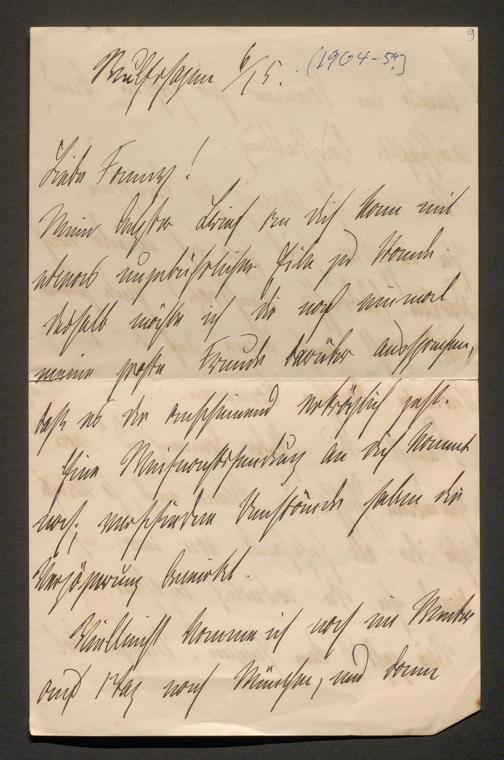 9
6/15. (1904-5?)
Liebe Fanny!
Mein letzter Brief an dich kam mit
etwas ungebührlicher Eile zu Stande.
deshalb möchte ich dir noch einmal
meine große Freude darüber aussprechen,
daß es dir anscheinend erträglich geht.
Eine Weihnachtssendung an dich kommt
noch; verschiedene Umstände haben die
Verzögerung bewirkt.
Vielleicht komme ich noch im Winter
auf 1 Tag nach München, und dann